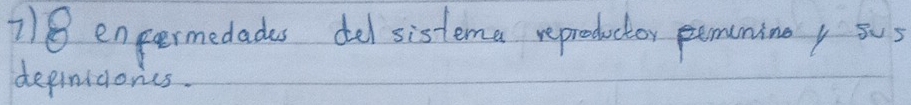 7) 8 enfermedades del sistema reproductor femenino y sus
definiciones.